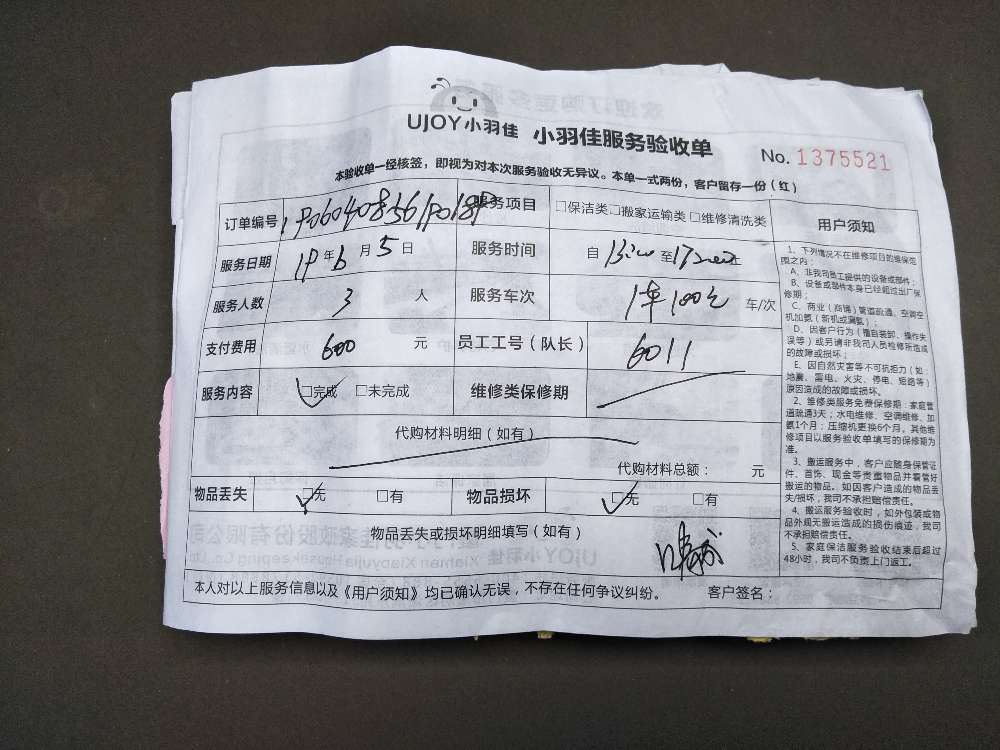 UJOY小羽佳 小羽佳服务验收单
No. 1375521
本验收单一经核签，即视为对本次服务验收无异议。本单一式两份，客户留存一份（红）
订单编号 服务项目 □保洁类□搬家运输类□维修清洗类
服务日期 19年6月5日 服务时间 自 至
服务人数 3 人 服务车次 1车100元 车/次
支付费用 600 元 员工工号（队长） 6011
服务内容 □完成 □未完成 维修类保修期
代购材料明细（如有）
代购材料总额： 元
物品丢失 □无 □有 物品损坏 □无 □有
物品丢失或损坏明细填写（如有）
本人对以上服务信息以及《用户须知》均已确认无误，不存在任何争议纠纷。 客户签名：
用户须知
1、下列情况不在维修项目的维保范
围之内：
A、非我司员工提供的设备或部件；
B、设备或部件本身已经超过出厂保
修期；
C、商业（商铺）管道疏通、空调空
机加氨（新机或漏氨）；
D、因客户行为（擅自装卸、操作失
误等）或另请非我司人员检修所造成
的故障或损坏；
E、因自然灾害等不可抗拒力（如：
地震、雷电、火灾、停电、短路等）
原因造成的故障或损坏。
2、维修类服务免费保修期：家庭管
道疏通3天；水电维修、空调维修、加
氨1个月；压缩机更换6个月。其他维
修项目以服务验收单填写的保修期为
准。
3、搬运服务中，客户应随身保管证
件、首饰、现金等贵重物品并看管好
搬运的物品。如因客户造成的物品丢
失/损坏，我司不承担赔偿责任。
4、搬运服务验收时，如外包装或物
品外观无搬运造成的损伤痕迹，我司
不承担赔偿责任。
5、家庭保洁服务验收结束后超过
48小时，我司不负责上门返工。